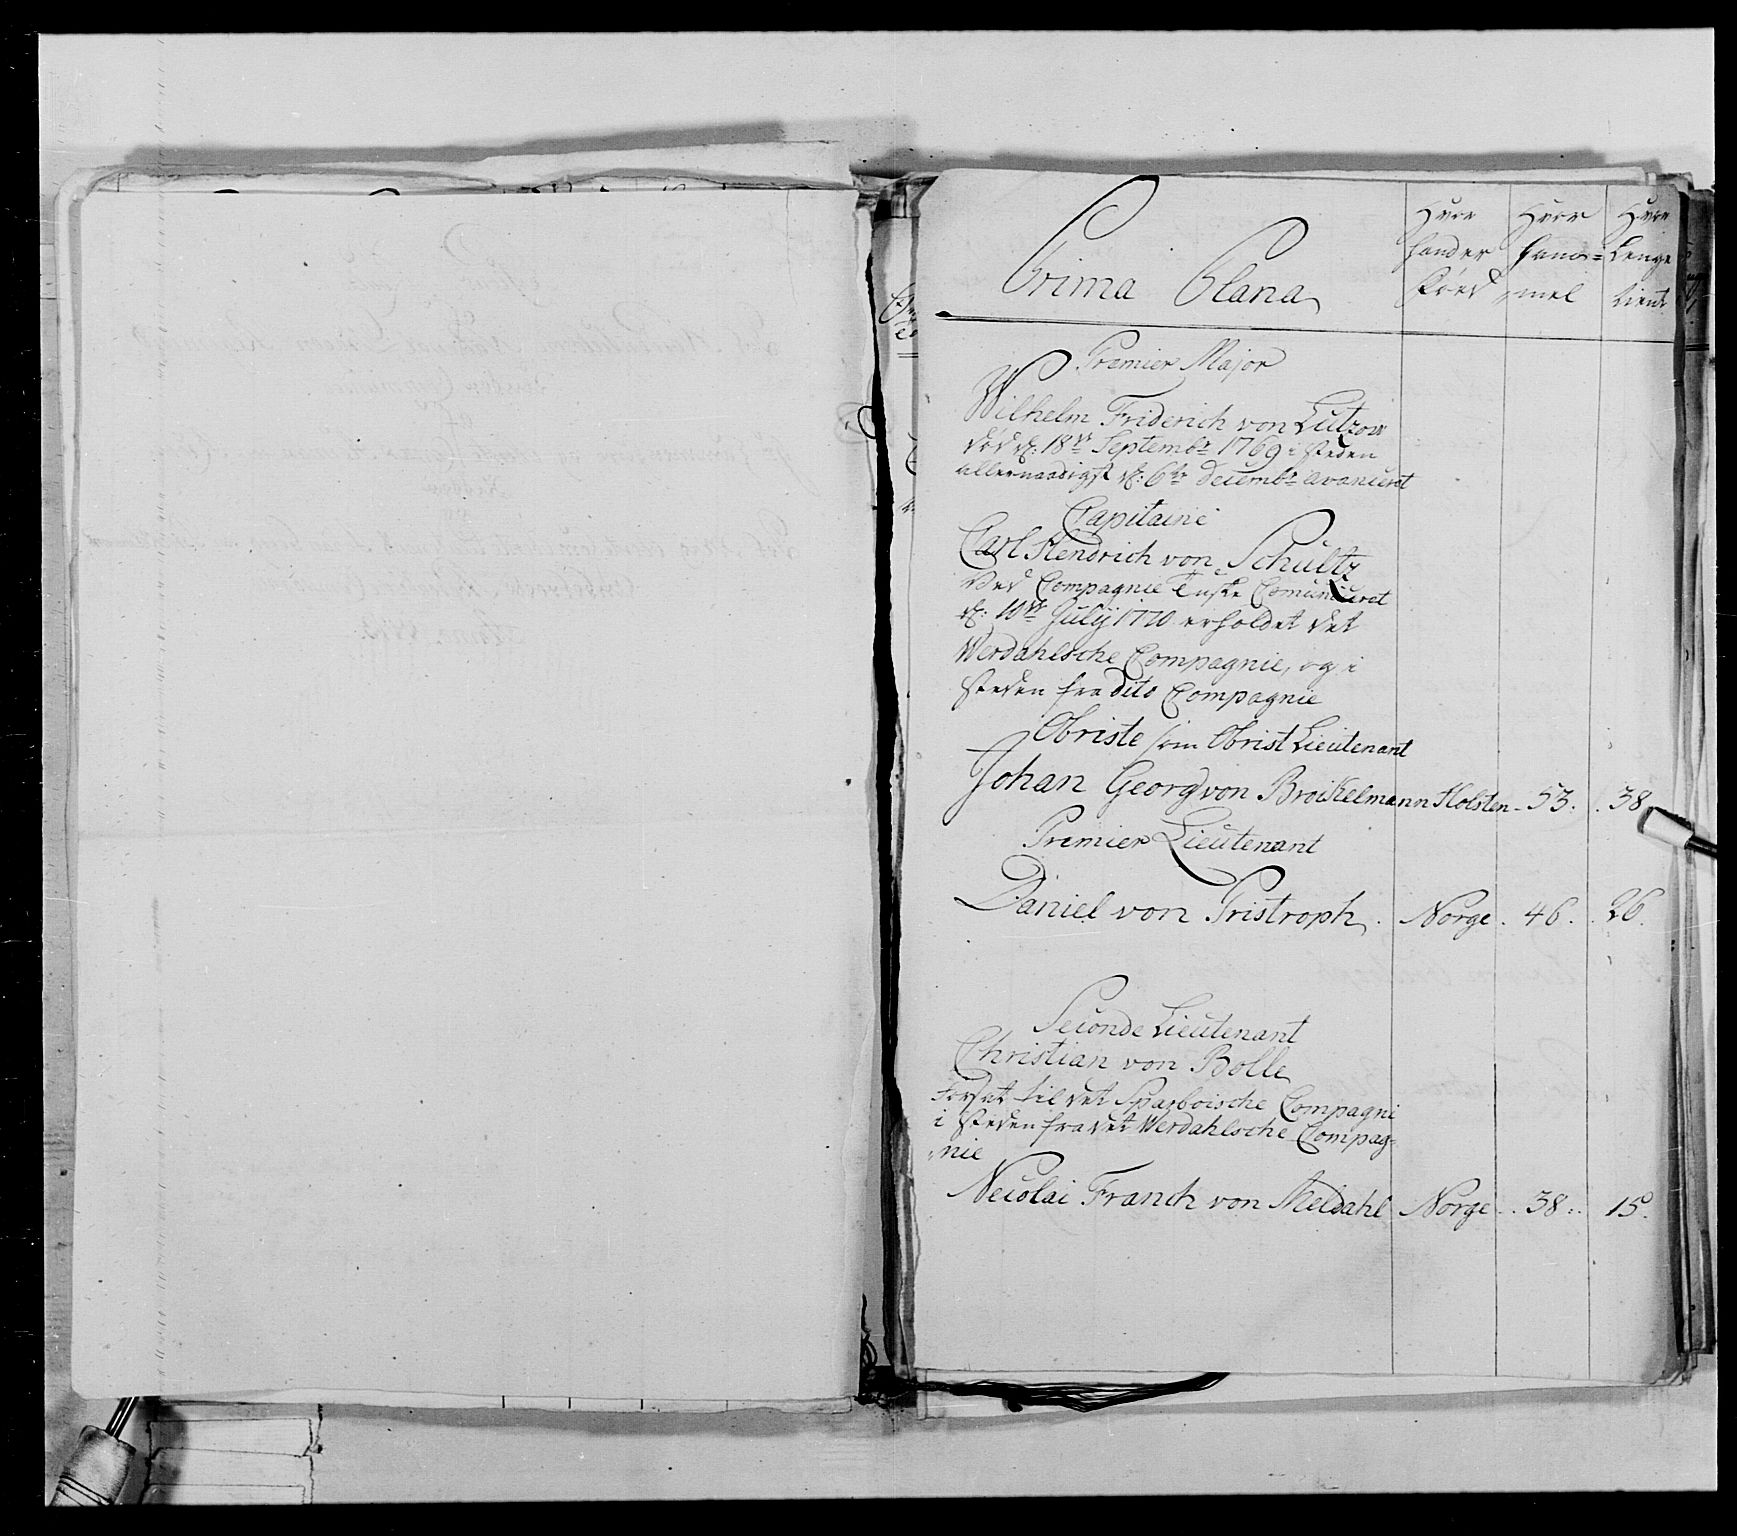 Prima Plana
Hvor
fander
Hvor
gam=
mel
Hvor
Lenge
tient
Premier Major
Wilhelm Friderich von Lützow
død d: 18de Septembr 1769 i steden
allernaadigst d: 6te Decembr avanceret
Capitaine
Carl Hendrich von Schultz
ved Compagnie
d: 10de Julÿ 1770 erholdet det
Werdahlsche Compagnie, og i
steden fra dito Compagnie
Obriste som Obrist Lieutenant
Johan Georg von Brockelmann Holsten 53. 38
Premier Lieutenant
Daniel von Pristroph. Norge. 46. 26.
Seconde Lieutenant
Christian von Bolle
Forsat til det Sparboische Compagni
i steden fra det Werdahlsche Compag=
nie
Necolai Franck von Meldahl Norge 38. 15.